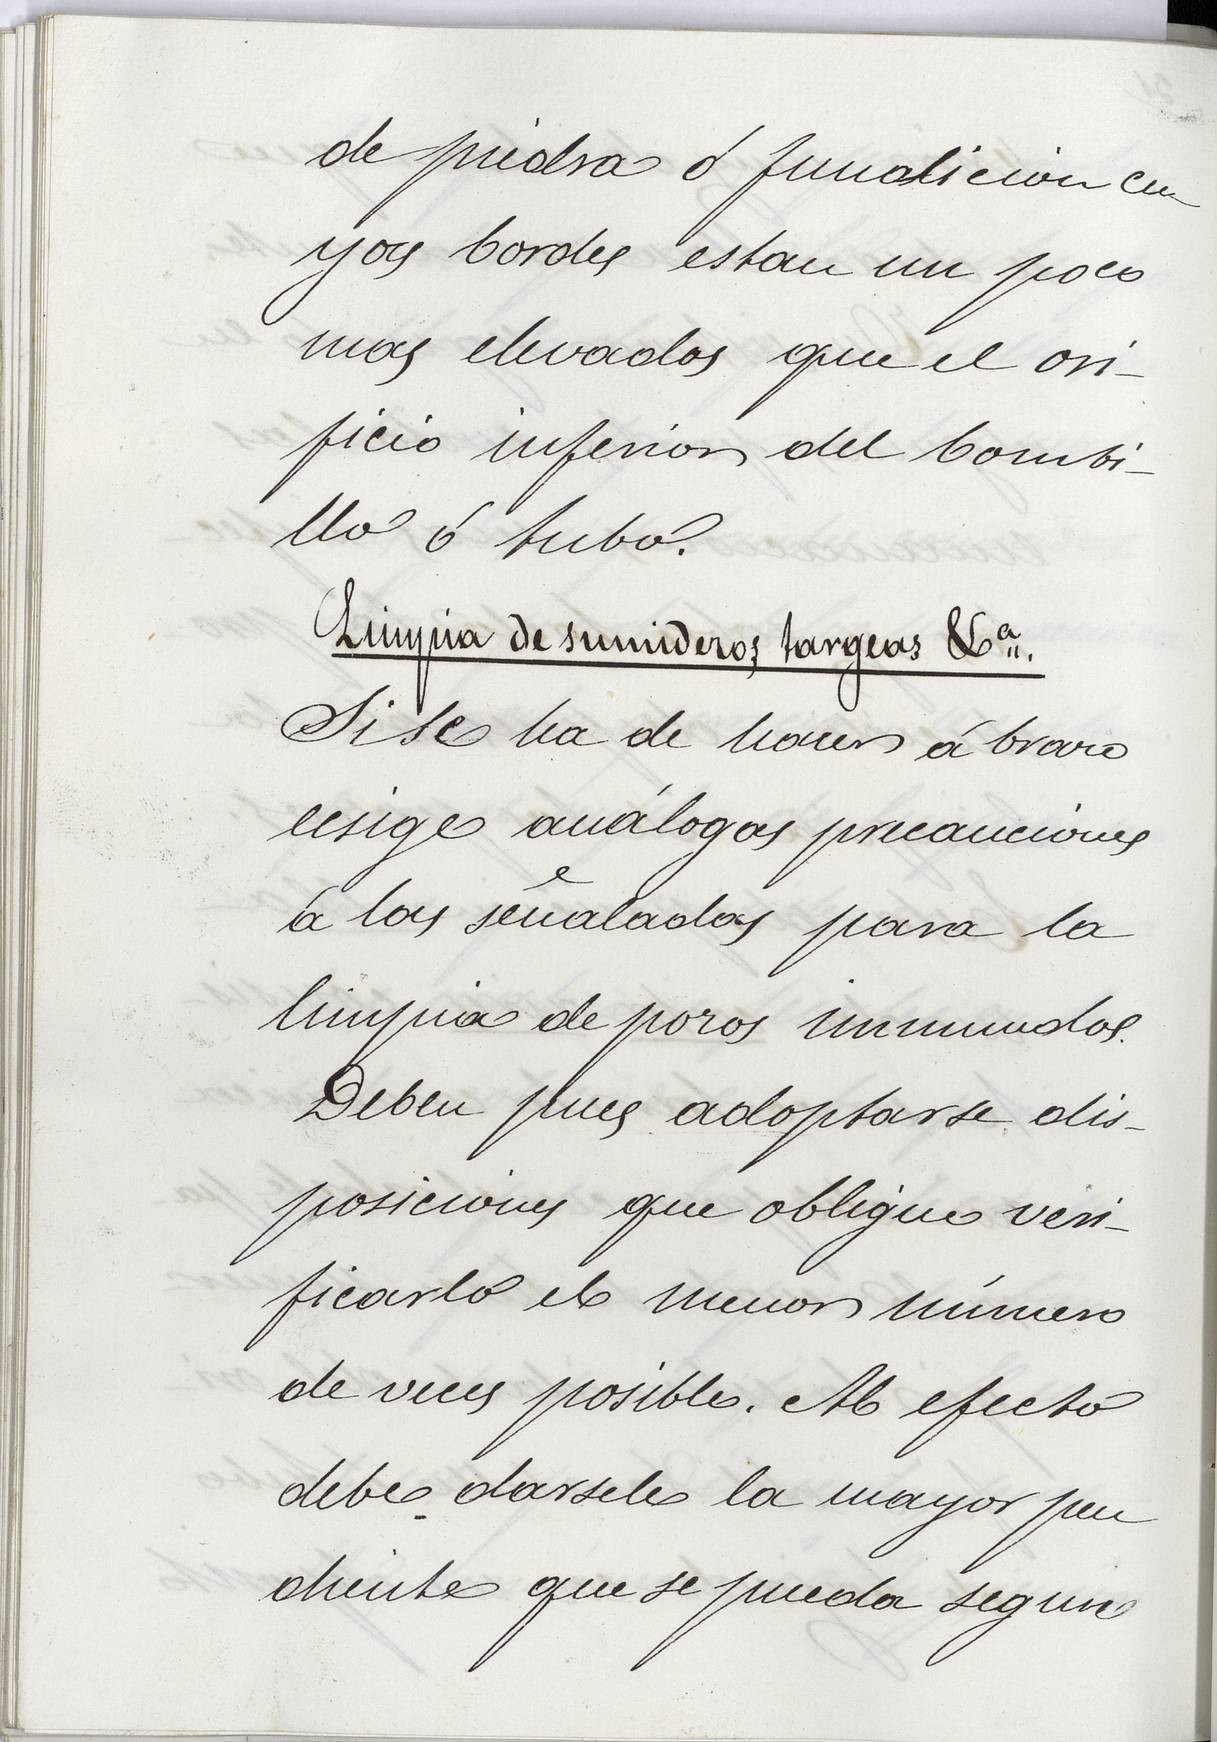 de piedra ó fundicion cu
yos bordes estan un poco
mas elevados que el ori-
ficio inferior del bombi-
llo ó tubo.
Limpia de sumideros, targeas &ª.
Si se ha de hacer á brazo
ecsige análogas precauciones
á las señaladas para la
limpia de pozos inmundos.
Deben pues adoptarse dis-
posiciones que obligue veri-
ficarlo el menor número
de veces posible. Al efecto
debe darsele la mayor pen
diente que se pueda segun